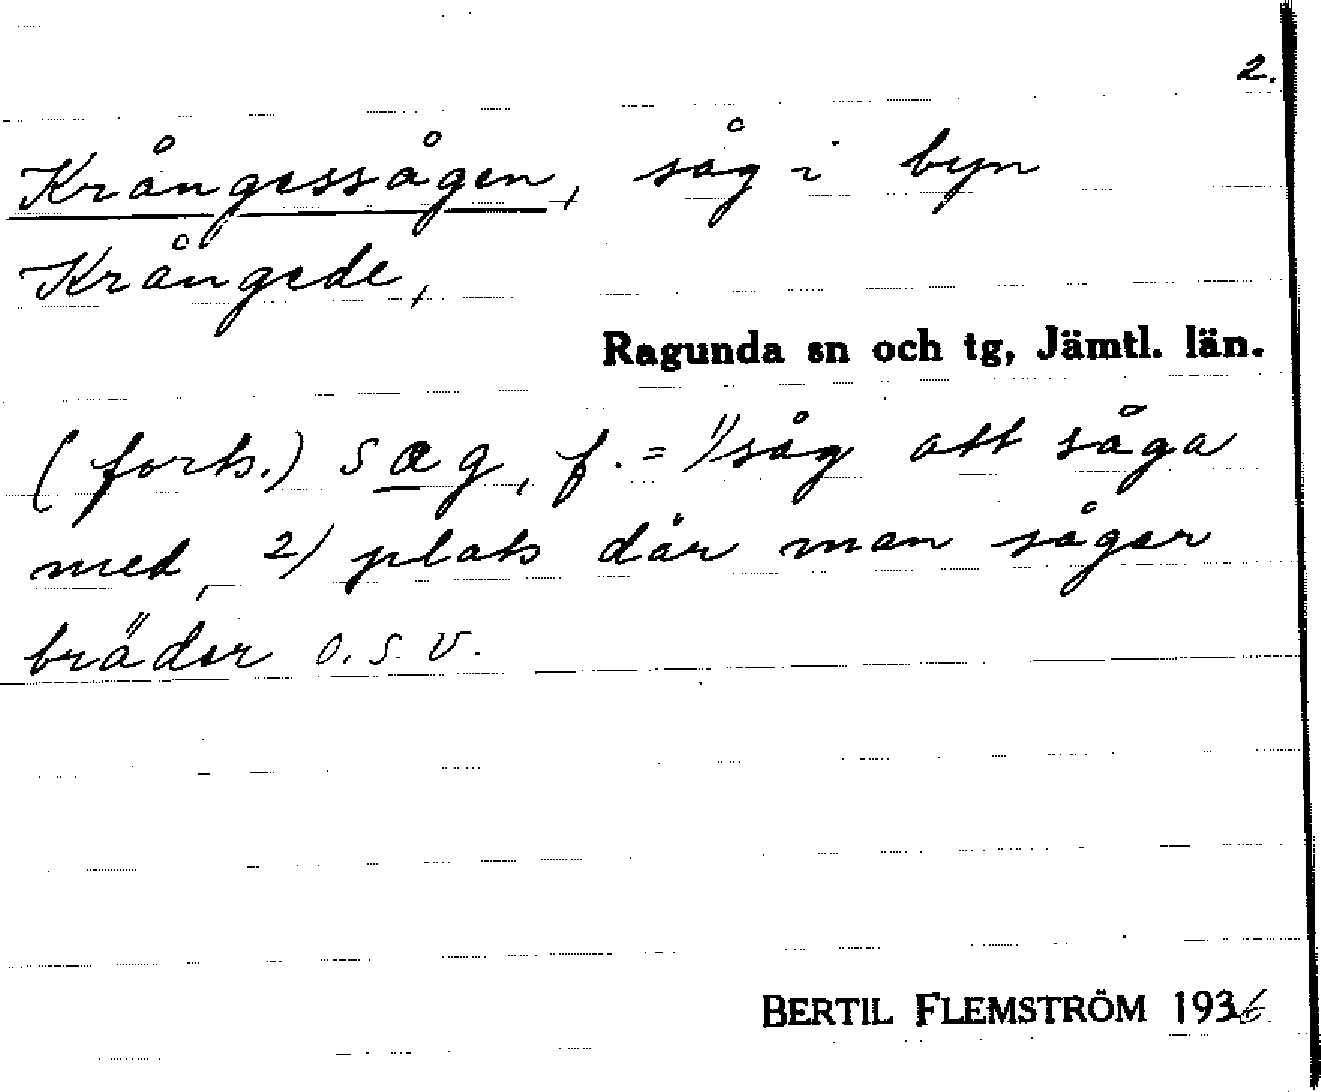 2.
Krångessågen, såg i byn
Krångede,
Ragunda sn och tg, Jämtl. län.
(forts.) sæg, f. = 1/såg att såga
med, 2/ plats där man sågar
bräder o.s.v.
BERTIL FLEMSTRÖM 1936